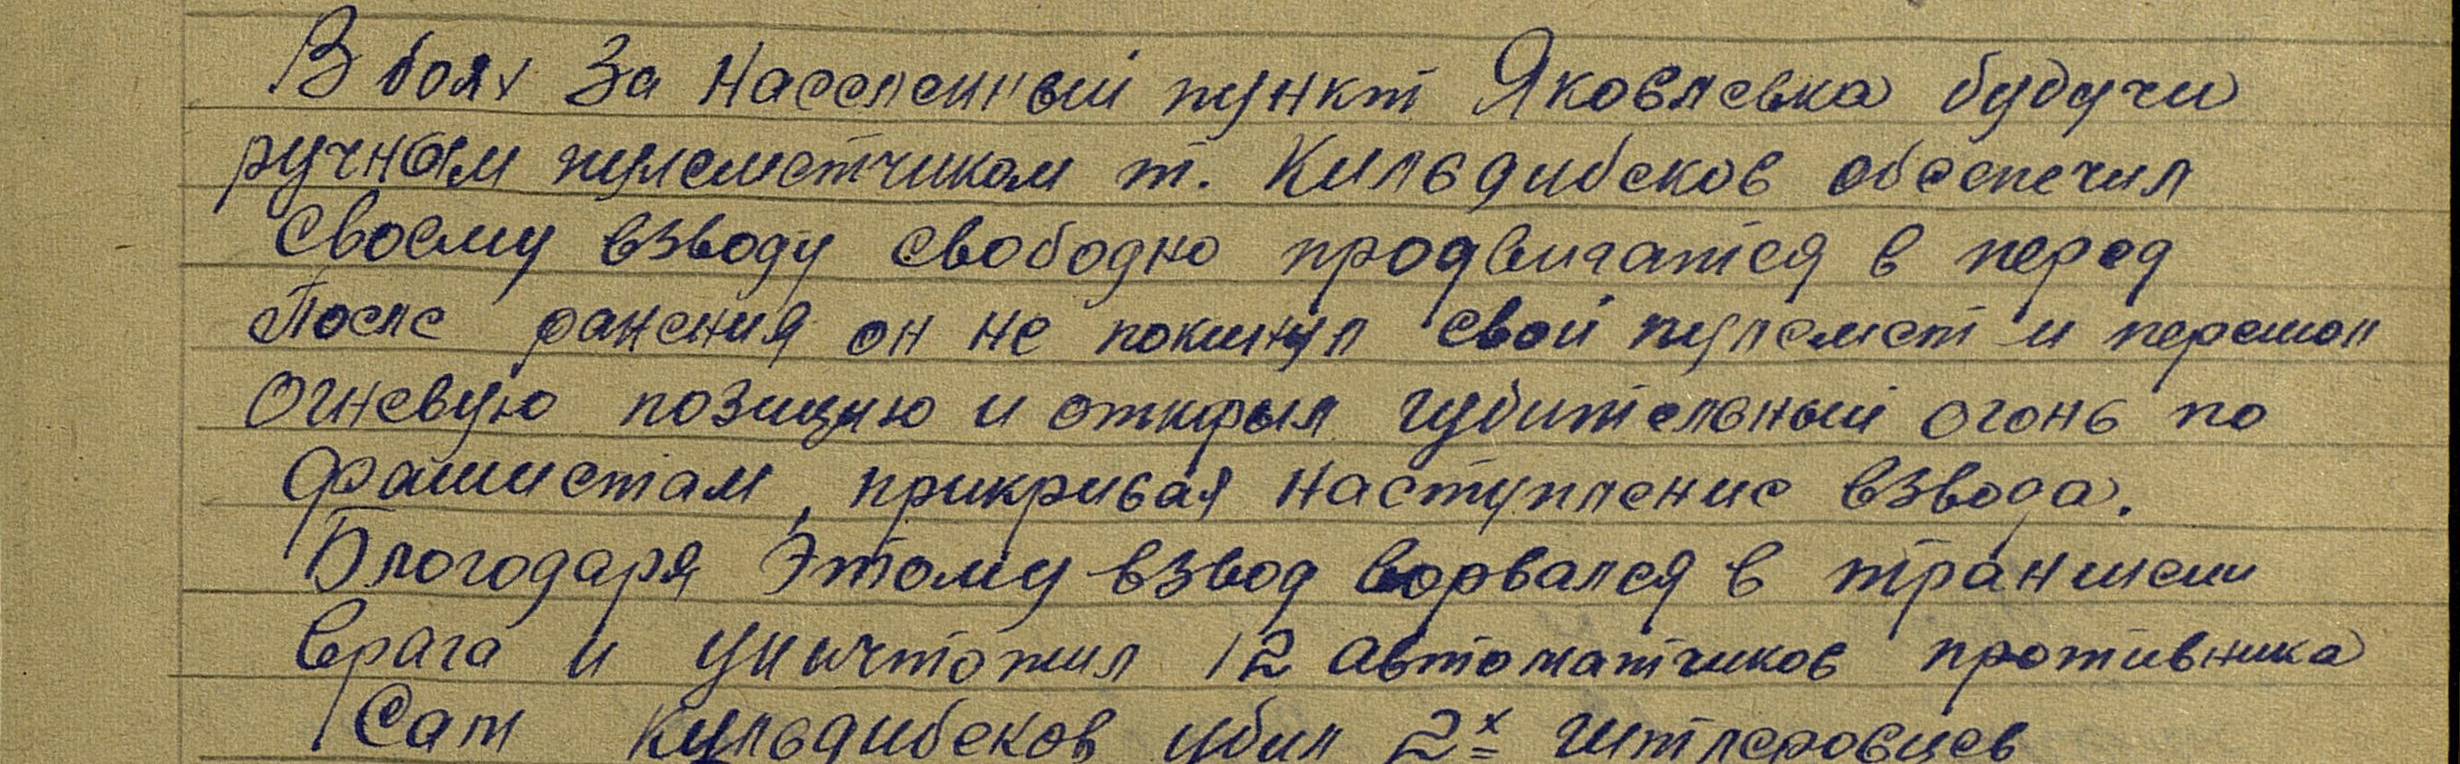 В боях За Населенный пункт Яковлевка будучи
ручным пулеметчиком т. Кильдибеков обеспечил
Своему взводу свободно продвигатся в перед
После ранения он не покинул свой пулемет и перешол
Огневую позицию и открыл губительный огонь по
фашистам, прикривая Наступление взвода.
Блогодаря Этому взвод ворвался в траншеи
врага и уничтожил 12 автоматчиков противника
Сам Кульдибеков убил 2х гитлеровцев